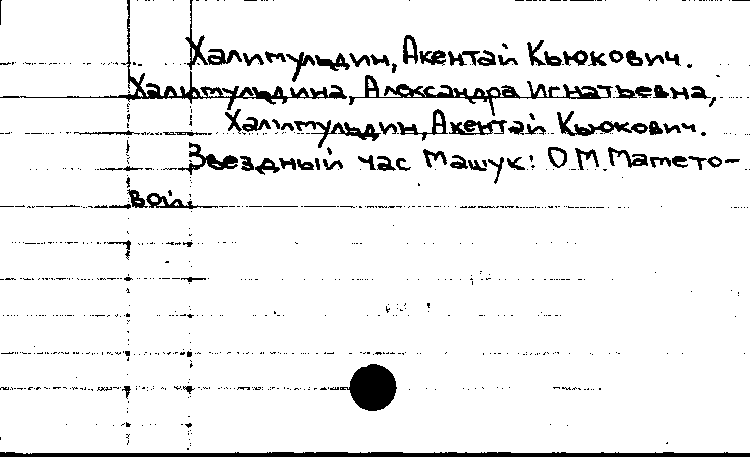 Халимульдин, Акентай Кьюкович.
Халимульдина, Александра Игнатьевна,
Халимульдин, Акентай Кьюкович.
Звездный час Машук: О М. Мамето-
вой.